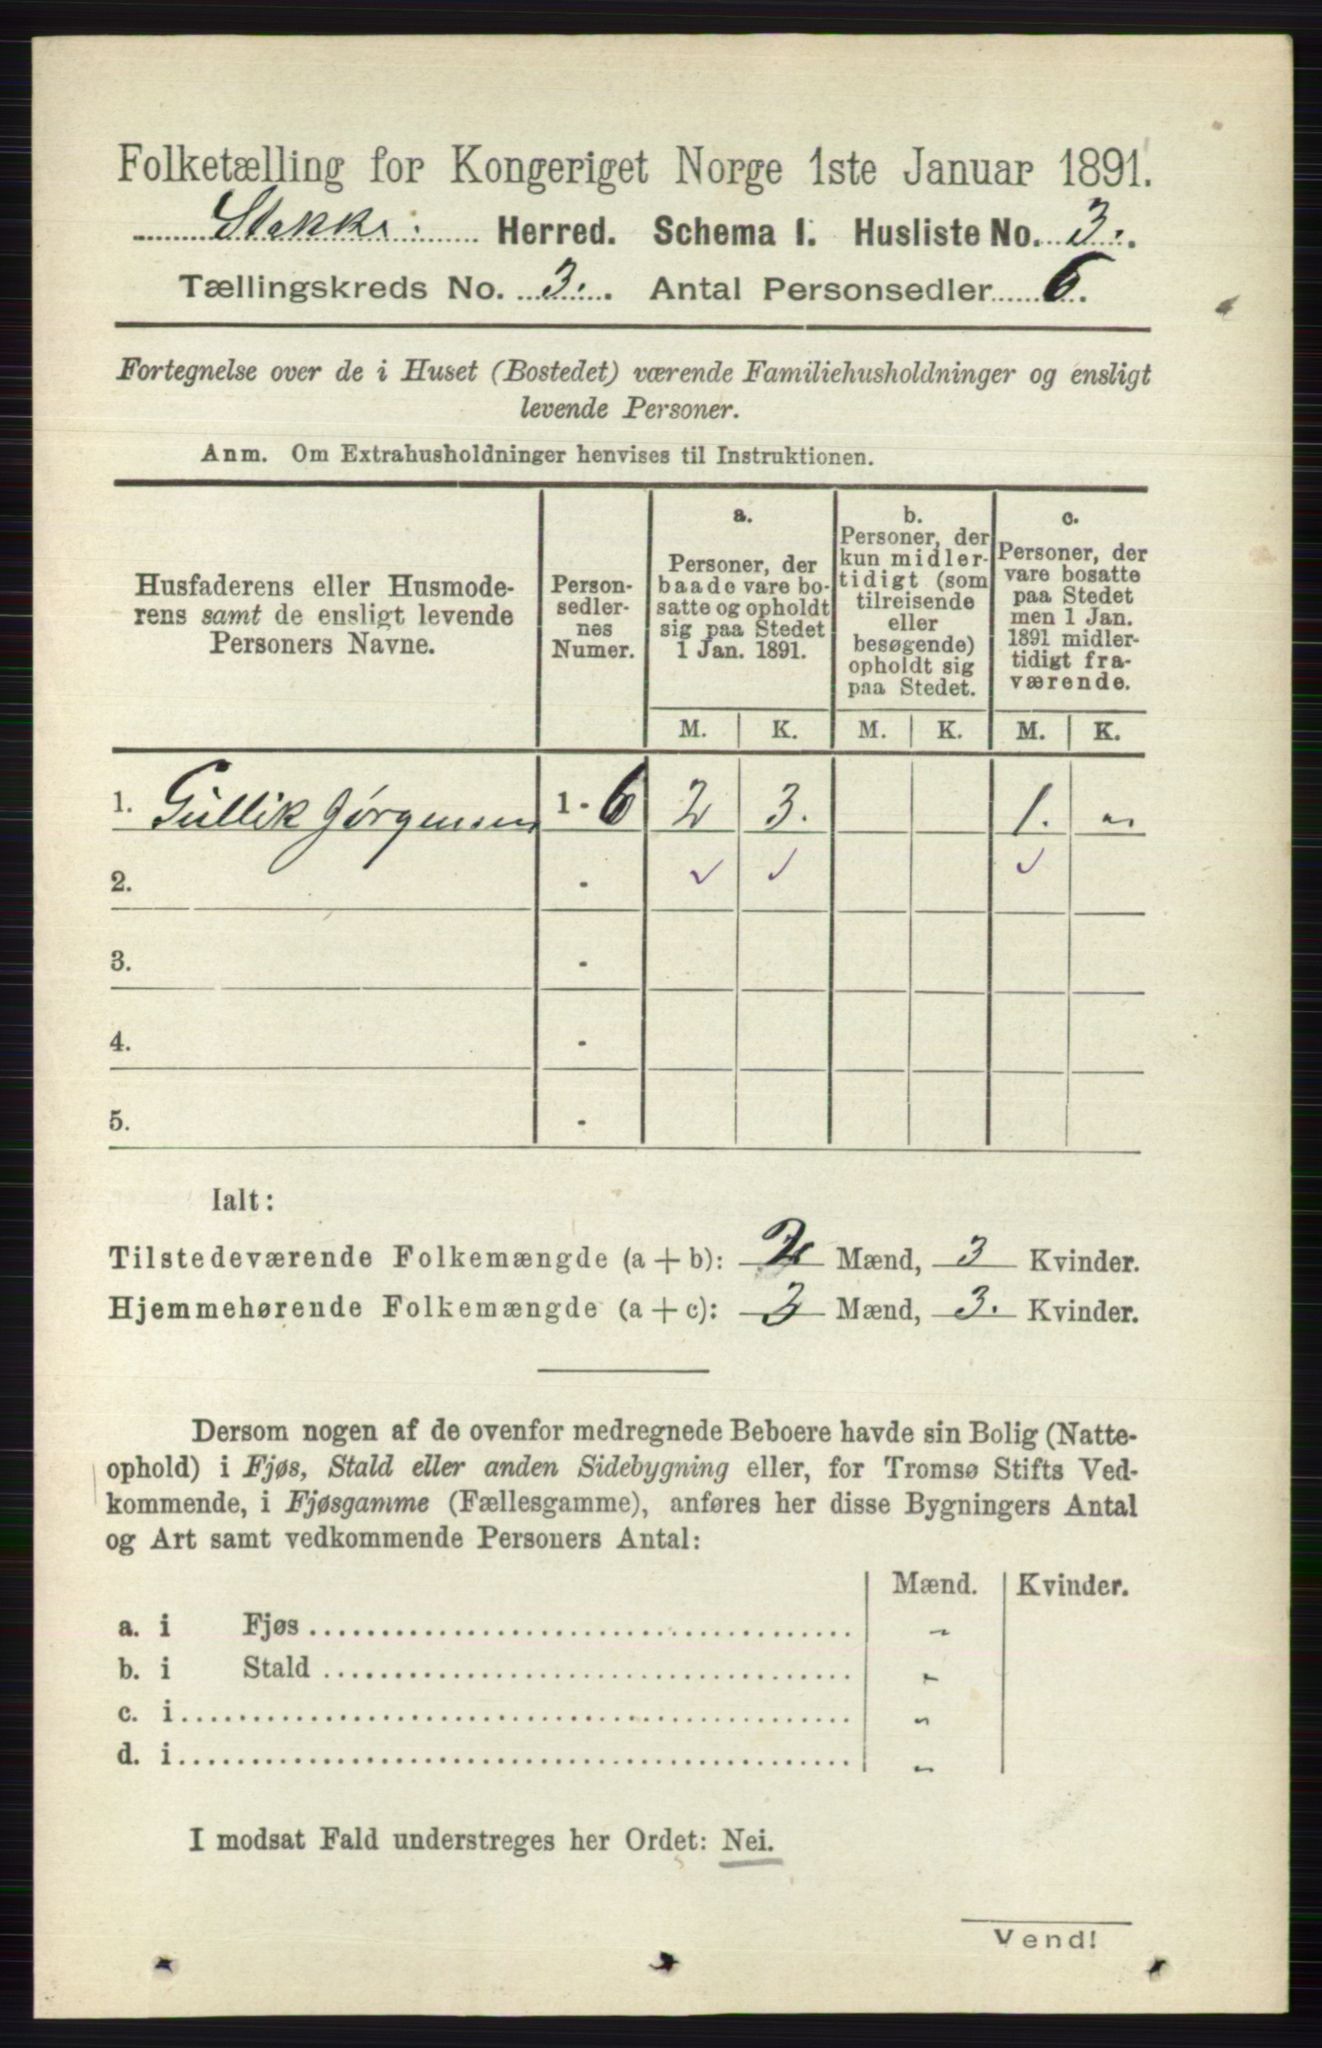 Folketælling for Kongeriget Norge 1ste Januar 1891.
Stokke Herred. Schema I. Husliste No. 3.
Tællingskreds No. 3. Antal Personsedler 6.
Fortegnelse over de i Huset (Bostedet) værende Familiehusholdninger og ensligt
levende Personer.
Anm. Om Extrahusholdninger henvises til Instruktionen.
Husfaderens eller Husmode-
rens samt de ensligt levende
Personers Navne.
Person-
sedler-
nes
Numer.
a.
Personer, der
baade vare bo-
satte og opholdt
sig paa Stedet
1 Jan. 1891.
b.
Personer, der
kun midler-
tidigt (som
tilreisende
eller
besøgende)
opholdt sig
paa Stedet.
c.
Personer, der
vare bosatte
paa Stedet
men 1 Jan.
1891 midler-
tidigt fra-
værende.
M. K. M. K. M. K.
1. Gullik Jørgensen 1 - 6 2 3. 1. "
2. - ✓ ✓ ✓
3. -
4. -
5. -
Ialt:
Tilstedeværende Folkemængde (a + b): 2 Mænd, 3 Kvinder.
Hjemmehørende Folkemængde (a + c): 3 Mænd, 3. Kvinder.
Dersom nogen af de ovenfor medregnede Beboere havde sin Bolig (Natte-
ophold) i Fjøs, Stald eller anden Sidebygning eller, for Tromsø Stifts Ved-
kommende, i Fjøsgamme (Fællesgamme), anføres her disse Bygningers Antal
og Art samt vedkommende Personers Antal:
Mænd. Kvinder.
a. i Fjøs "
b. i Stald "
c. i "
d. i "
I modsat Fald understreges her Ordet: Nei.
Vend!